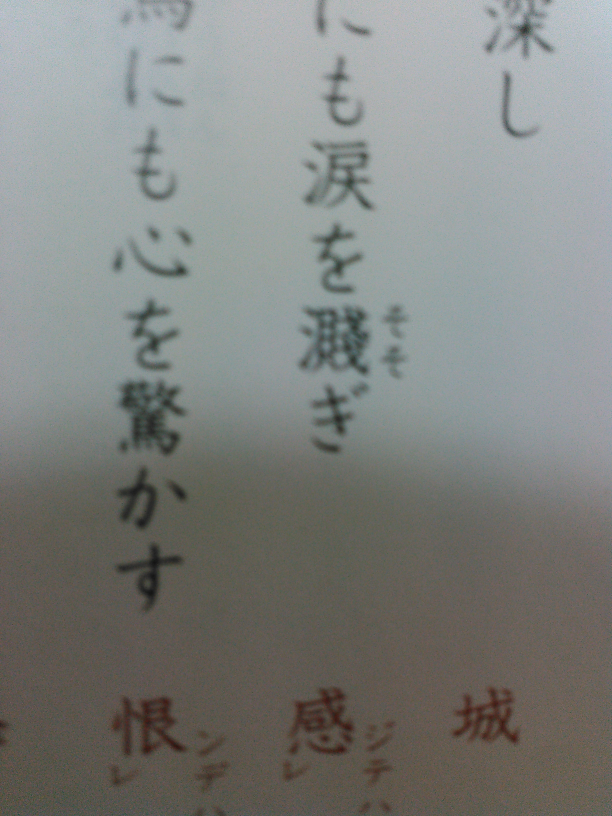 深し
にも涙を濺ぎ
そそ
鳥にも心を驚かす
城
感
ジテハ
レ
恨
ンデハ
レ